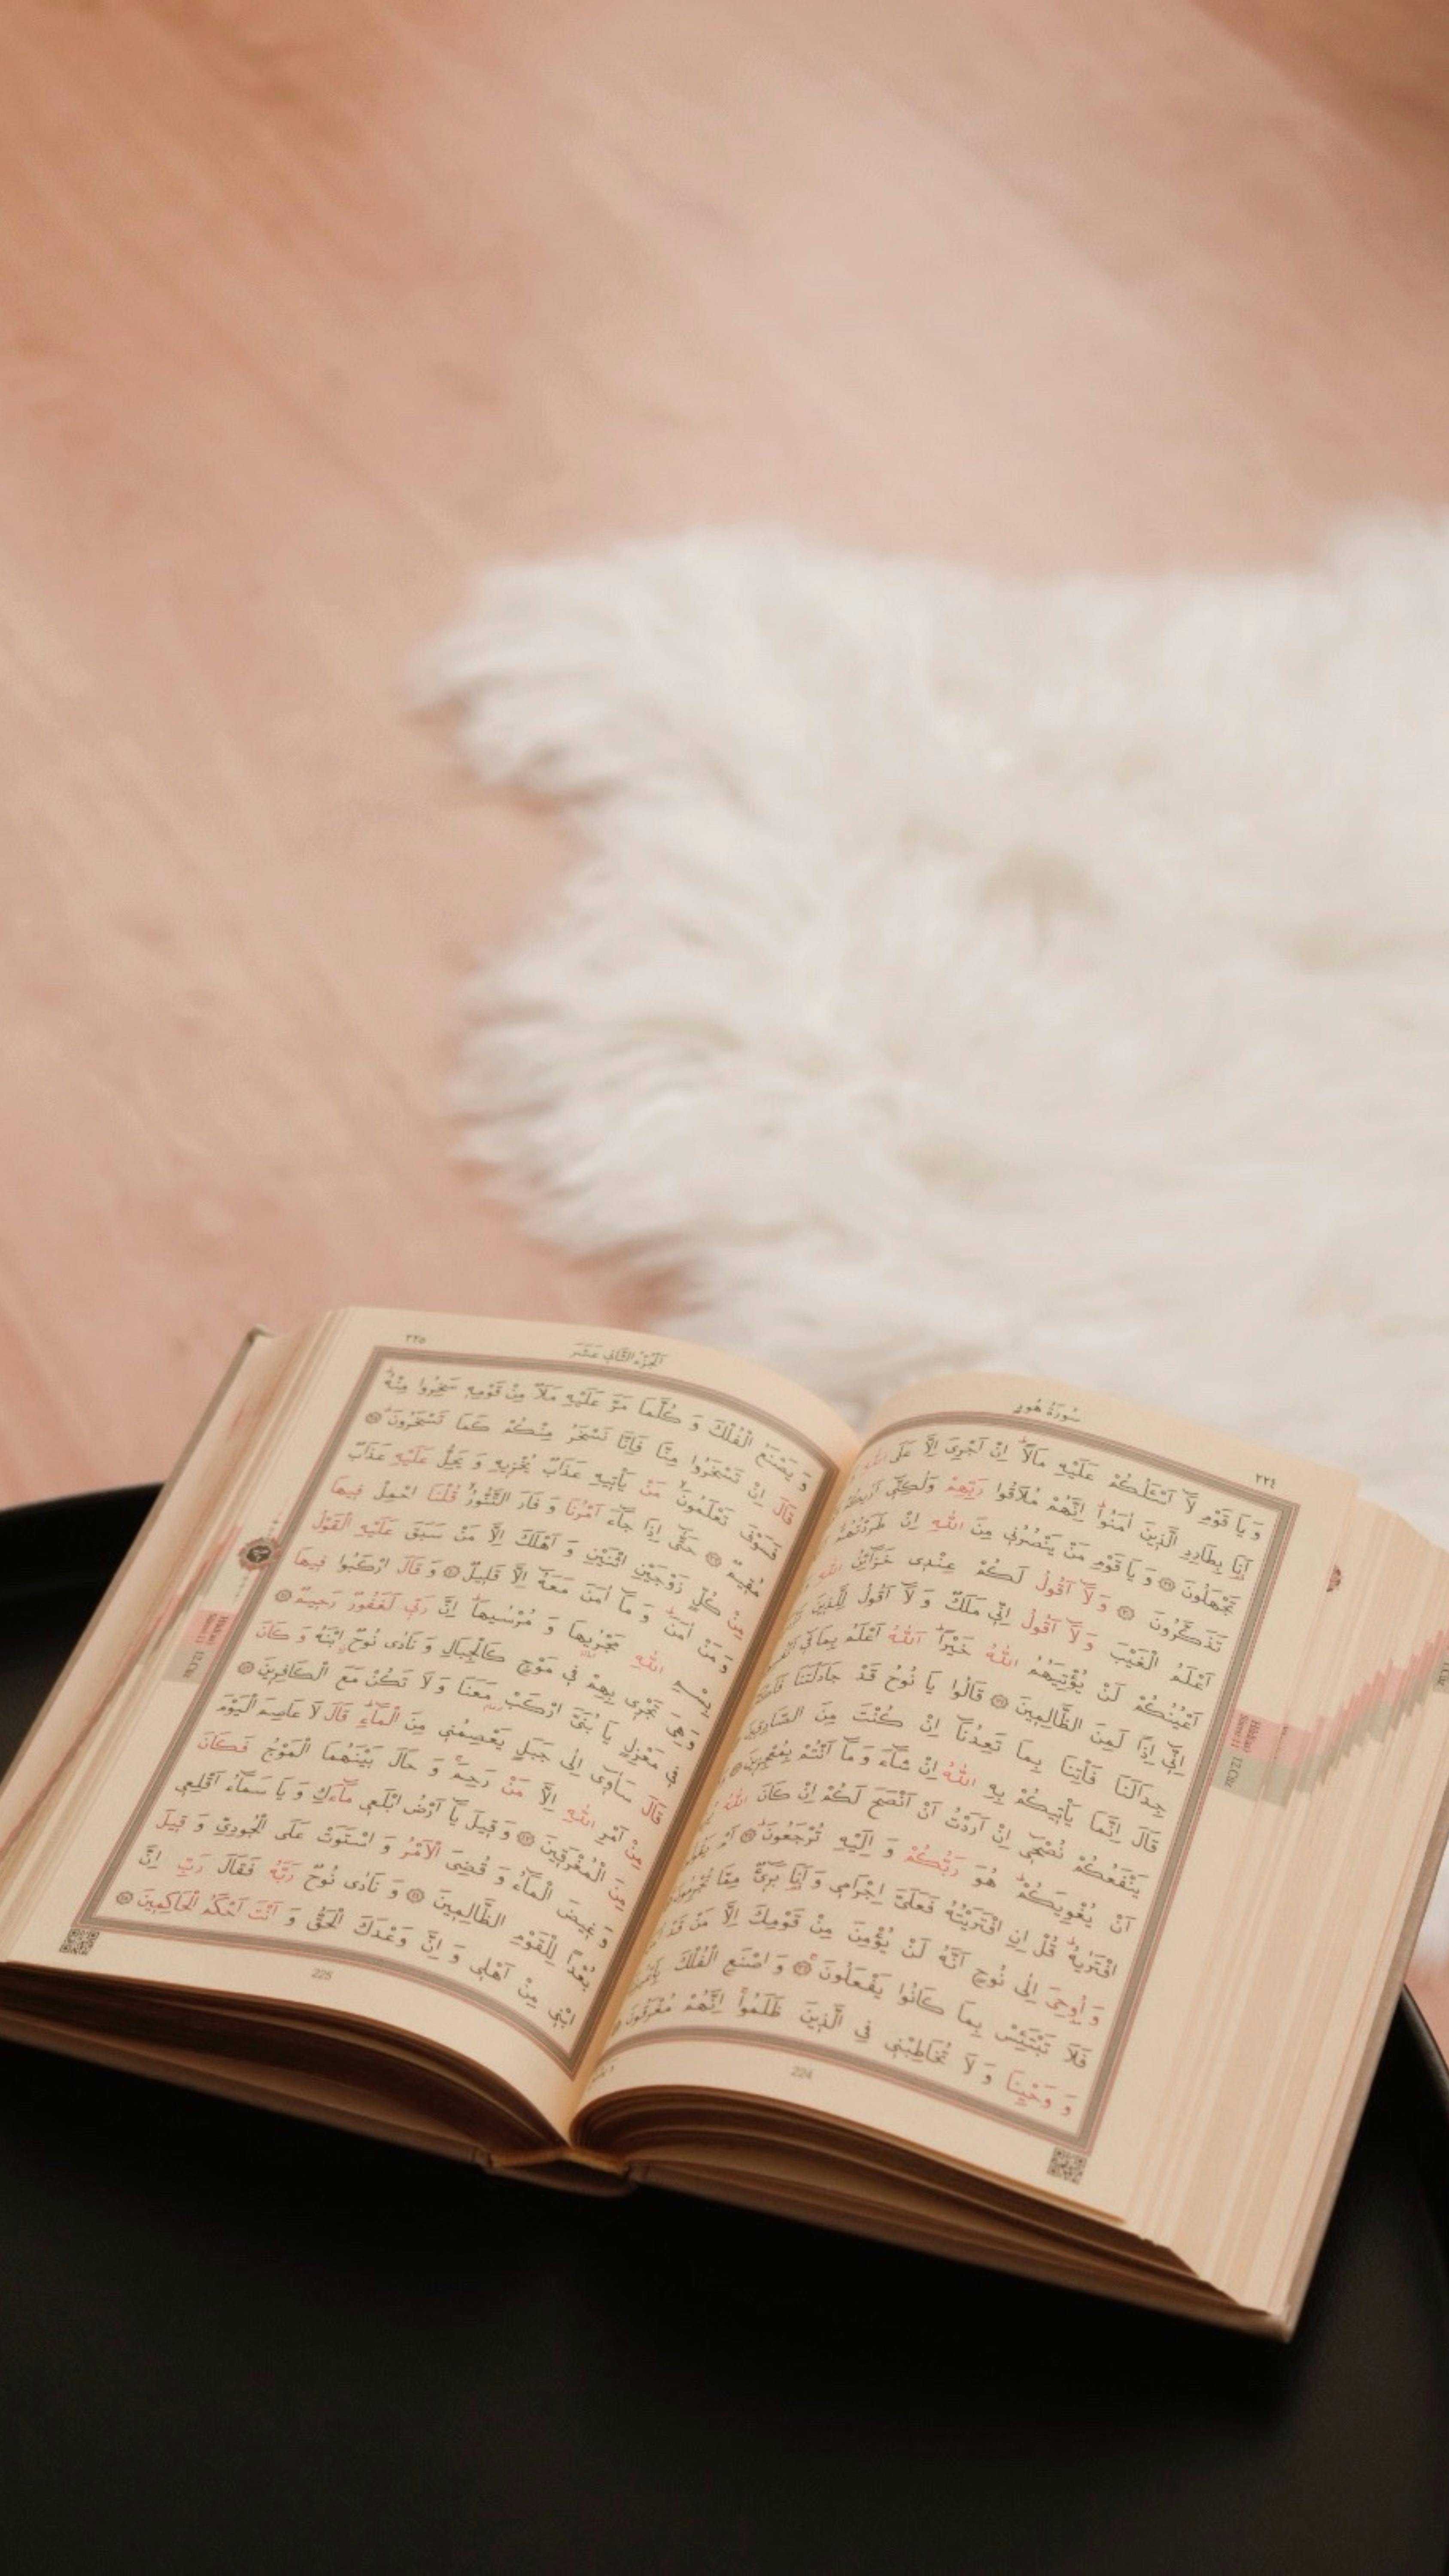 سُورَةُ هُودٍ
٢٢٤
وَ يَا قَوْمِ لَآ اَسْـَٔلُكُمْ عَلَيْهِ مَالًاۜ اِنْ اَجْرِىَ اِلَّا عَلَى اللّٰهِ
اَنَا۬ بِطَارِدِ الَّذِينَ اٰمَنُواۜ اِنَّهُمْ مُلَاقُوا رَبِّهِمْ وَلٰكِنِّٓى اَرٰيكُمْ
تَجْهَلُونَ ۝ وَ يَا قَوْمِ مَنْ يَنْصُرُنِى مِنَ اللّٰهِ اِنْ طَرَدْتُهُمْ
تَذَكَّرُونَ ۝ وَ لَآ اَقُولُ لَكُمْ عِنْدِى خَزَٓائِنُ اللّٰهِ
اَعْلَمُ الْغَيْبَ وَ لَآ اَقُولُ اِنِّى مَلَكٌ وَ لَآ اَقُولُ لِلَّذِينَ
اَعْيُنُكُمْ لَنْ يُؤْتِيَهُمُ اللّٰهُ خَيْرًاۜ اَللّٰهُ اَعْلَمُ بِمَا فِٓى اَنْفُسِهِمْ
اِنِّٓى اِذًا لَمِنَ الظَّالِمِينَ ۝ قَالُوا يَا نُوحُ قَدْ جَادَلْتَنَا فَاَكْثَرْتَ
جِدَالَنَا فَأْتِنَا بِمَا تَعِدُنَٓا اِنْ كُنْتَ مِنَ الصَّادِقِينَ
قَالَ اِنَّمَا يَأْتِيكُمْ بِهِ اللّٰهُ اِنْ شَٓاءَ وَ مَٓا اَنْتُمْ بِمُعْجِزِينَ ۝
يَنْفَعُكُمْ نُصْحِٓى اِنْ اَرَدْتُ اَنْ اَنْصَحَ لَكُمْ اِنْ كَانَ اللّٰهُ
اَنْ يُغْوِيَكُمْۜ هُوَ رَبُّكُمْ وَ اِلَيْهِ تُرْجَعُونَۜ ۝ اَمْ يَقُولُونَ
افْتَرٰيهُۜ قُلْ اِنِ افْتَرَيْتُهُ فَعَلَىَّ اِجْرَامِى وَ اَنَا۬ بَرِٓىءٌ مِمَّا تُجْرِمُونَ
وَ اُو۫حِىَ اِلٰى نُوحٍ اَنَّهُ لَنْ يُؤْمِنَ مِنْ قَوْمِكَ اِلَّا مَنْ قَدْ اٰمَنَ
فَلَا تَبْتَئِسْ بِمَا كَانُوا يَفْعَلُونَۚ ۝ وَ اصْنَعِ الْفُلْكَ بِاَعْيُنِنَا
وَ وَحْيِنَا وَ لَا تُخَاطِبْنِى فِى الَّذِينَ ظَلَمُواۚ اِنَّهُمْ مُغْرَقُونَ
224
Hûd Suresi 11
12.Cüz
٢٢٥
اَلْجُزْءُ الثَّانِى عَشَرَ
وَ يَصْنَعُ الْفُلْكَ وَ كُلَّمَا مَرَّ عَلَيْهِ مَلَاٌ مِنْ قَوْمِهِ سَخِرُوا مِنْهُۜ
قَالَ اِنْ تَسْخَرُوا مِنَّا فَاِنَّا نَسْخَرُ مِنْكُمْ كَمَا تَسْخَرُونَۜ ۝
فَسَوْفَ تَعْلَمُونَۙ مَنْ يَأْتِيهِ عَذَابٌ يُخْزِيهِ وَ يَحِلُّ عَلَيْهِ عَذَابٌ
مُقِيمٌ ۝ حَتّٰٓى اِذَا جَٓاءَ اَمْرُنَا وَ فَارَ التَّنُّورُۙ قُلْنَا احْمِلْ فِيهَا
مِنْ كُلٍّ زَوْجَيْنِ اثْنَيْنِ وَ اَهْلَكَ اِلَّا مَنْ سَبَقَ عَلَيْهِ الْقَوْلُ
وَ مَنْ اٰمَنَۜ وَ مَٓا اٰمَنَ مَعَهُٓ اِلَّا قَلِيلٌ ۝ وَ قَالَ ارْكَبُوا فِيهَا
بِسْمِ اللّٰهِ مَجْرٰۭىهَا وَ مُرْسٰيهَاۜ اِنَّ رَبِّى لَغَفُورٌ رَحِيمٌ ۝
وَ هِىَ تَجْرِى بِهِمْ فِى مَوْجٍ كَالْجِبَالِ وَ نَادٰى نُوحٌۨ ابْنَهُ وَ كَانَ
فِى مَعْزِلٍ يَا بُنَىَّ ارْكَبْ مَعَنَا وَ لَا تَكُنْ مَعَ الْكَافِرِينَ ۝
قَالَ سَاٰو۪ٓى اِلٰى جَبَلٍ يَعْصِمُنِى مِنَ الْمَٓاءِۜ قَالَ لَا عَاصِمَ الْيَوْمَ
مِنْ اَمْرِ اللّٰهِ اِلَّا مَنْ رَحِمَۚ وَ حَالَ بَيْنَهُمَا الْمَوْجُ فَكَانَ
مِنَ الْمُغْرَقِينَ ۝ وَ قِيلَ يَٓا اَرْضُ ابْلَعِى مَٓاءَكِ وَ يَا سَمَٓاءُ اَقْلِعِى
وَ غِيضَ الْمَٓاءُ وَ قُضِىَ الْاَمْرُ وَ اسْتَوَتْ عَلَى الْجُودِىِّ وَ قِيلَ
بُعْدًا لِلْقَوْمِ الظَّالِمِينَ ۝ وَ نَادٰى نُوحٌ رَبَّهُ فَقَالَ رَبِّ اِنَّ
ابْنِى مِنْ اَهْلِى وَ اِنَّ وَعْدَكَ الْحَقُّ وَ اَنْتَ اَحْكَمُ الْحَاكِمِينَ ۝
225
12.Cüz